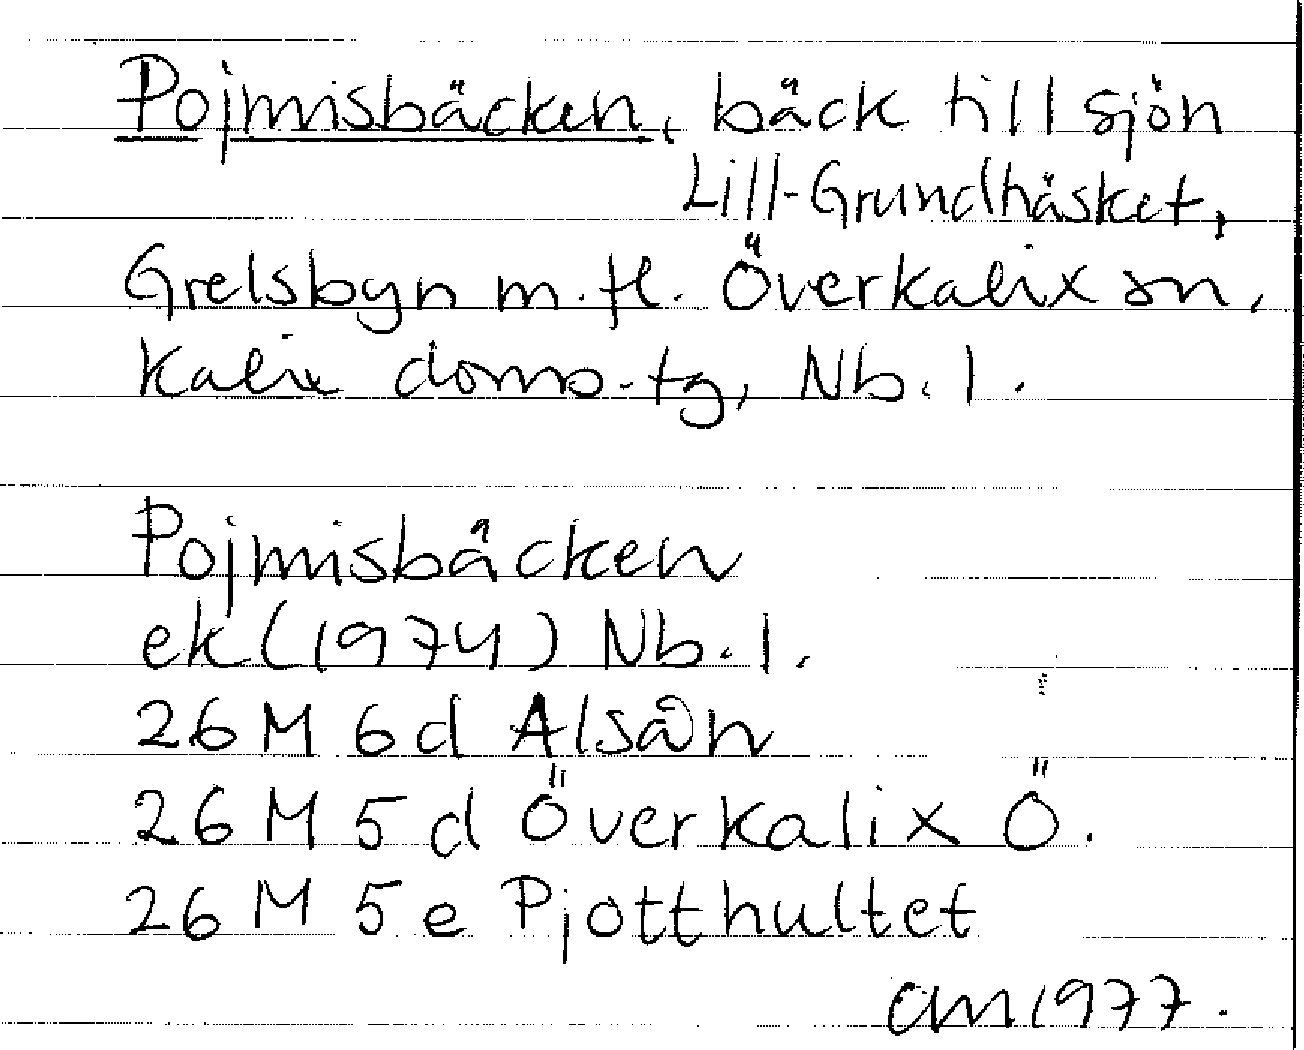 Pojmisbäcken, bäck till sjön
Lill-Grundträsket,
Grelsbyn m.fl. Överkalix sn,
Kalix doms.-tg, Nb.l.
Pojmisbäcken
ek (1974) Nb.l.
26 M 6d Alsån
26 M 5d Överkalix Ö.
26 M 5e Pjotthultet
am 1977.